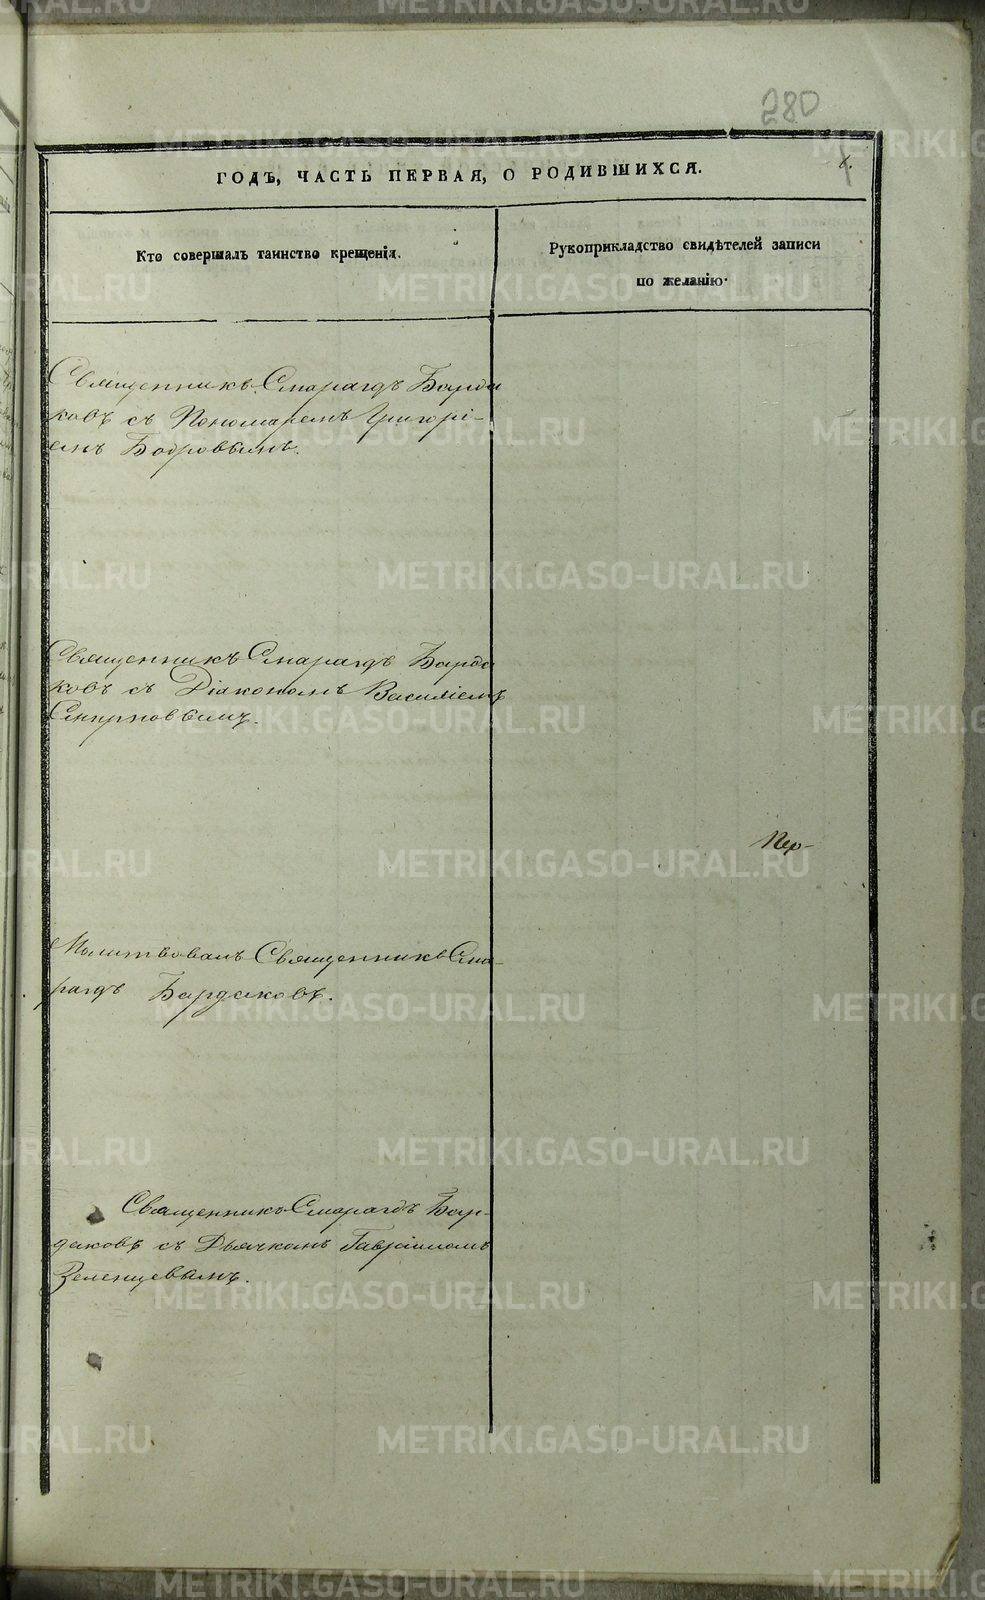 280
6.
ГОДЪ, ЧАСТЬ ПЕРВАЯ, О РОДИВШИХСЯ.
Кто совершалъ таинство крещенія.
Рукоприкладство свидѣтелей записи
по желанію.
Священникъ Смарагдъ Барда
ковъ съ Пономаремъ Григорі-
емъ Бобровымъ.
Священникъ Смарагдъ Барда
ковъ съ Діакономъ Василіемъ
Смирновымъ.
Пер-
Молитвовалъ Священникъ Сма-
рагдъ Бардаковъ.
Священникъ Смарагдъ Бар-
даковъ съ Дьячкомъ Гавріиломъ
Зеленцевымъ.
METRIKI.GASO-URAL.RU